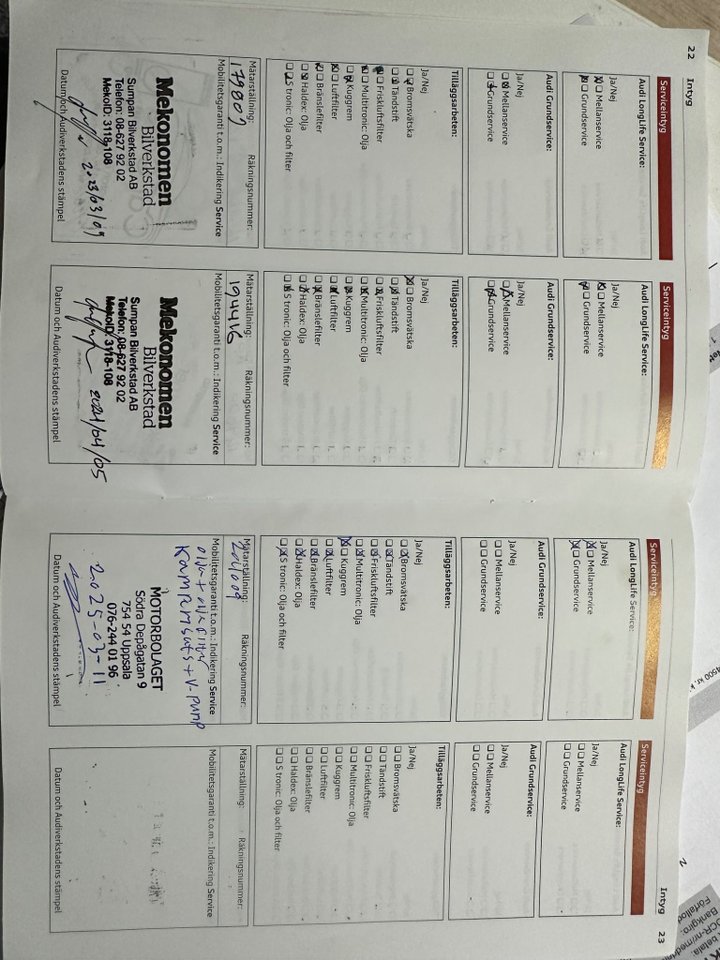 22 Intyg
Serviceintyg
Audi LongLife Service:
Ja/Nej
Mellanservice
Grundservice
Audi Grundservice:
Ja/Nej
Mellanservice
Grundservice
Tilläggsarbeten:
Ja/Nej
Bromsvätska
Tändstift
Friskluftsfilter
Multitronic: Olja
Kuggrem
Luftfilter
Bränslefilter
Haldex: Olja
S tronic: Olja och filter
Mätarställning: Räkningsnummer:
179809
Mobilitetsgaranti t.o.m.: Indikering Service
Mekonomen
Bilverkstad
Sumpan Bilverkstad AB
Telefon: 08-627 92 02
MekoID: 3118-108
2023/03/09
Datum och Audiverkstadens stämpel
Serviceintyg
Audi LongLife Service:
Ja/Nej
Mellanservice
Grundservice
Audi Grundservice:
Ja/Nej
Mellanservice
Grundservice
Tilläggsarbeten:
Ja/Nej
Bromsvätska
Tändstift
Friskluftsfilter
Multitronic: Olja
Kuggrem
Luftfilter
Bränslefilter
Haldex: Olja
S tronic: Olja och filter
Mätarställning: Räkningsnummer:
Mobilitetsgaranti t.o.m.: Indikering Service
Mekonomen
Bilverkstad
Sumpan Bilverkstad AB
Telefon: 08-627 92 02
MekoID: 3118-108
2024/04/05
Datum och Audiverkstadens stämpel
Serviceintyg
Audi LongLife Service:
Ja/Nej
Mellanservice
Grundservice
Audi Grundservice:
Ja/Nej
Mellanservice
Grundservice
Tilläggsarbeten:
Ja/Nej
Bromsvätska
Tändstift
Friskluftsfilter
Multitronic: Olja
Kuggrem
Luftfilter
Bränslefilter
Haldex: Olja
S tronic: Olja och filter
Mätarställning: Räkningsnummer:
Mobilitetsgaranti t.o.m.: Indikering Service
olja + oljefilter
Kamremsats + V-pump
MOTORBOLAGET
Södra Depågatan 9
754 54 Uppsala
076-244 01 96
2025-03-11
Datum och Audiverkstadens stämpel
Intyg 23
Serviceintyg
Audi LongLife Service:
Ja/Nej
Mellanservice
Grundservice
Audi Grundservice:
Ja/Nej
Mellanservice
Grundservice
Tilläggsarbeten:
Ja/Nej
Bromsvätska
Tändstift
Friskluftsfilter
Multitronic: Olja
Kuggrem
Luftfilter
Bränslefilter
Haldex: Olja
S tronic: Olja och filter
Mätarställning: Räkningsnummer:
Mobilitetsgaranti t.o.m.: Indikering Service
Datum och Audiverkstadens stämpel
Bankgiro: